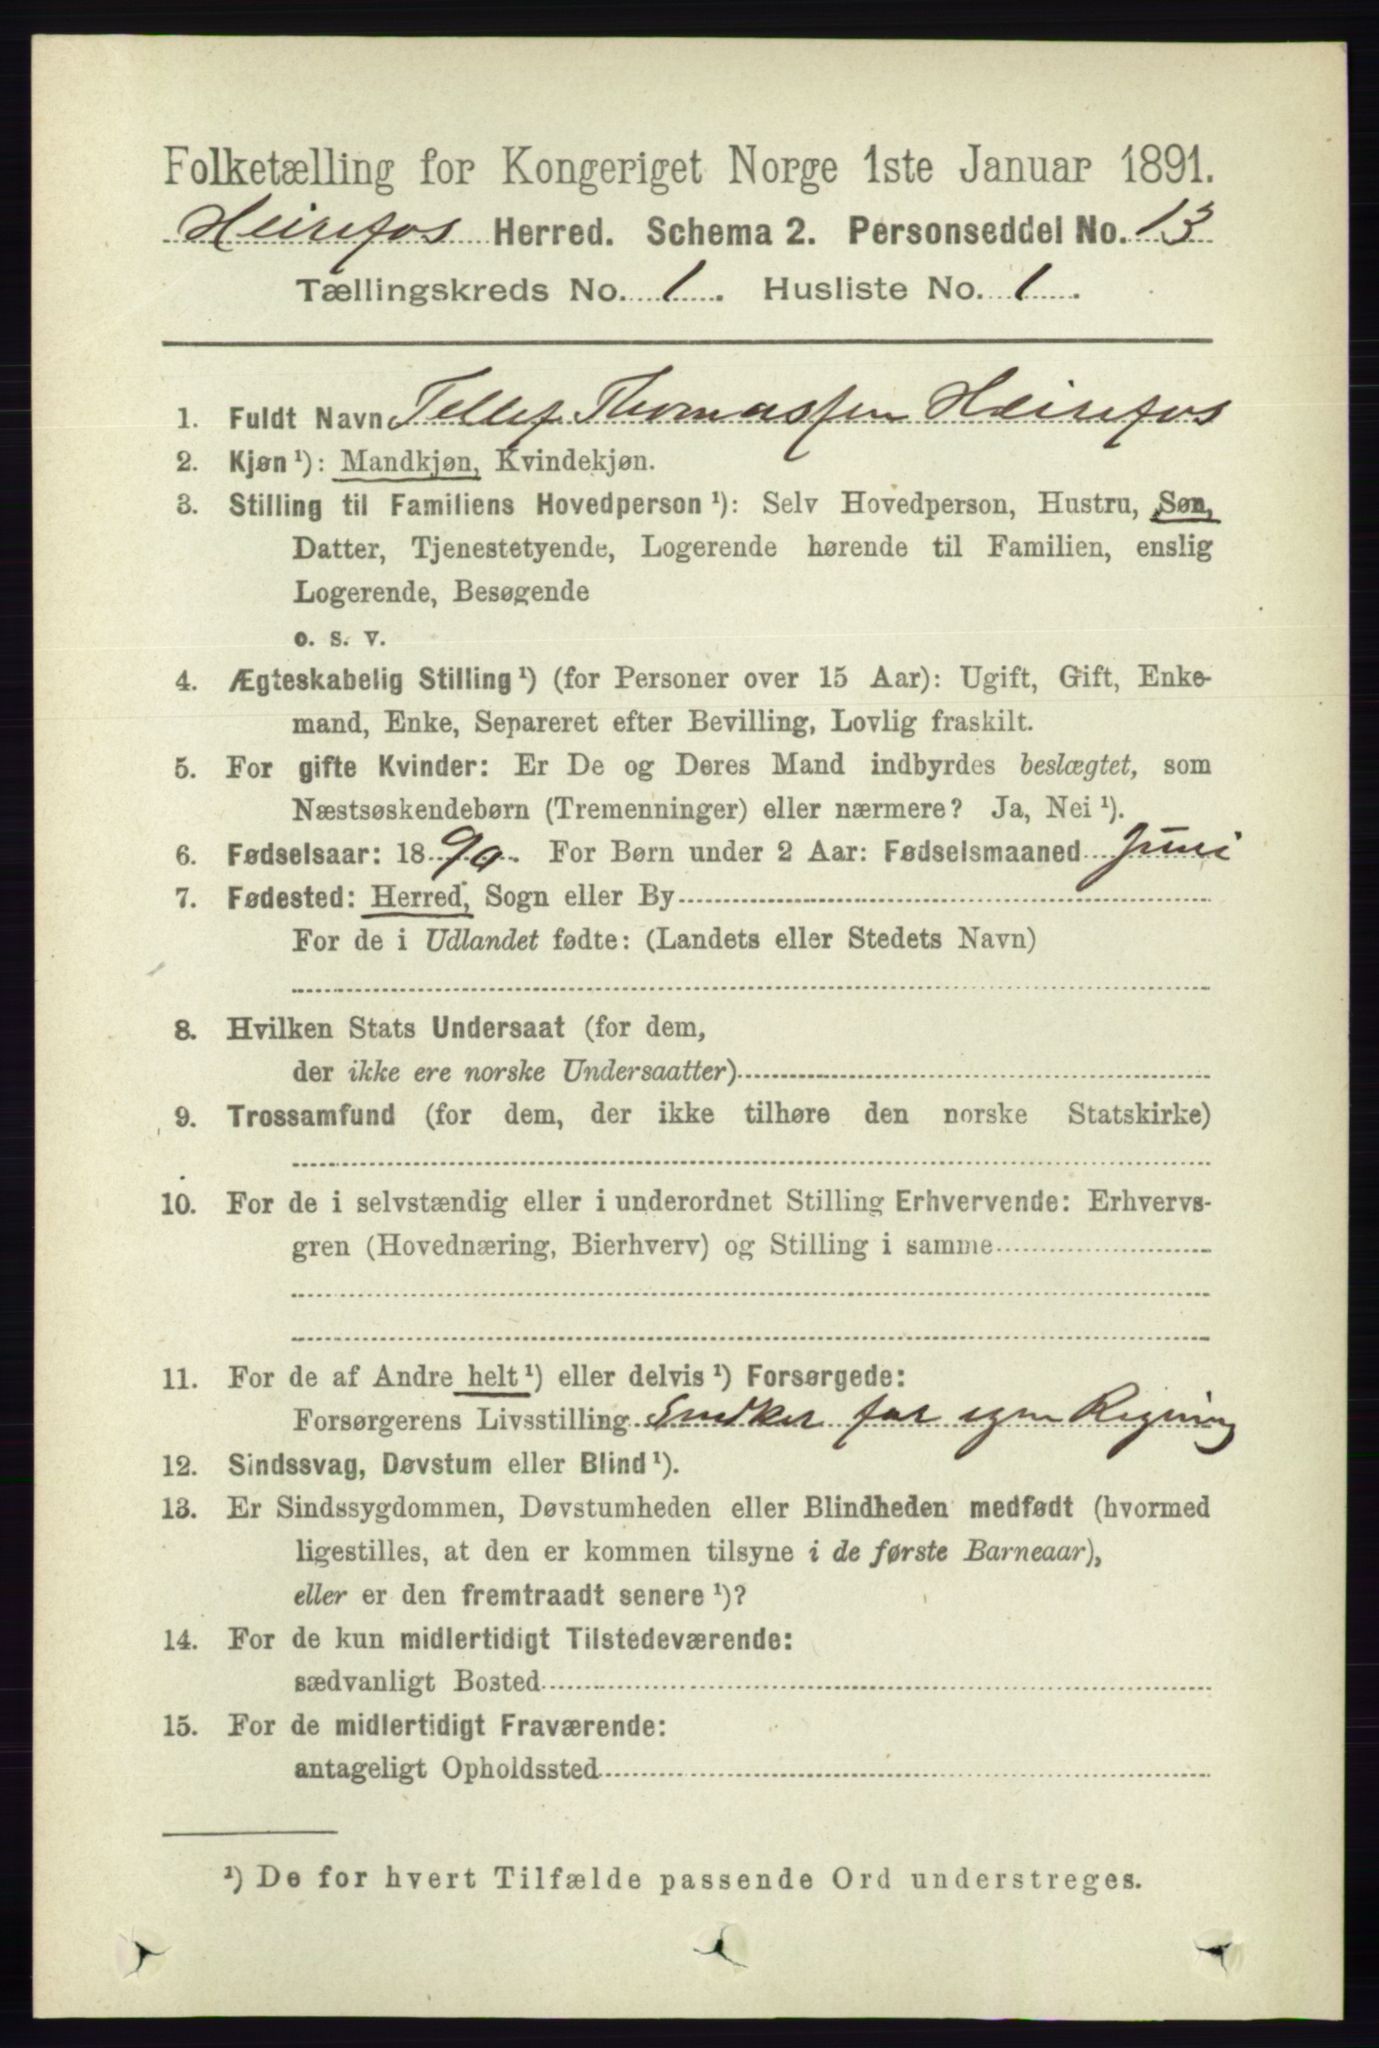 Folketælling for Kongeriget Norge 1ste Januar 1891.
Heirefos Herred. Schema 2. Personseddel No. 13
Tællingskreds No. 1. Husliste No. 1.
1. Fuldt Navn Tellef Thomassen Heirefos
2. Kjøn ¹): Mandkjøn, Kvindekjøn.
3. Stilling til Familiens Hovedperson ¹): Selv Hovedperson, Hustru, Søn,
Datter, Tjenestetyende, Logerende hørende til Familien, enslig
Logerende, Besøgende
o. s. v.
4. Ægteskabelig Stilling ¹) (for Personer over 15 Aar): Ugift, Gift, Enke-
mand, Enke, Separeret efter Bevilling, Lovlig fraskilt.
5. For gifte Kvinder: Er De og Deres Mand indbyrdes beslægtet, som
Næstsøskendebørn (Tremenninger) eller nærmere? Ja, Nei ¹).
6. Fødselsaar: 1890. For Børn under 2 Aar: Fødselsmaaned Juni
7. Fødested: Herred, Sogn eller By
For de i Udlandet fødte: (Landets eller Stedets Navn)
8. Hvilken Stats Undersaat (for dem,
der ikke ere norske Undersaatter)
9. Trossamfund (for dem, der ikke tilhøre den norske Statskirke)
10. For de i selvstændig eller i underordnet Stilling Erhvervende: Erhvervs-
gren (Hovednæring, Bierhverv) og Stilling i samme
11. For de af Andre helt ¹) eller delvis ¹) Forsørgede:
Forsørgerens Livsstilling Snedker for egen Regning
12. Sindssvag, Døvstum eller Blind ¹).
13. Er Sindssygdommen, Døvstumheden eller Blindheden medfødt (hvormed
ligestilles, at den er kommen tilsyne i de første Barneaar),
eller er den fremtraadt senere ¹)?
14. For de kun midlertidigt Tilstedeværende:
sædvanligt Bosted
15. For de midlertidigt Fraværende:
antageligt Opholdssted
¹) De for hvert Tilfælde passende Ord understreges.